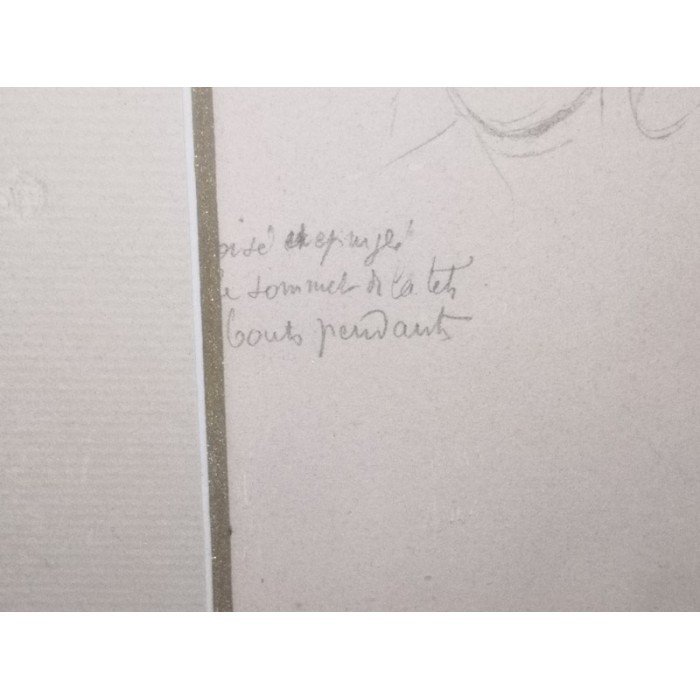 oisé et epinglé
le sommet de la tête
bouts pendants